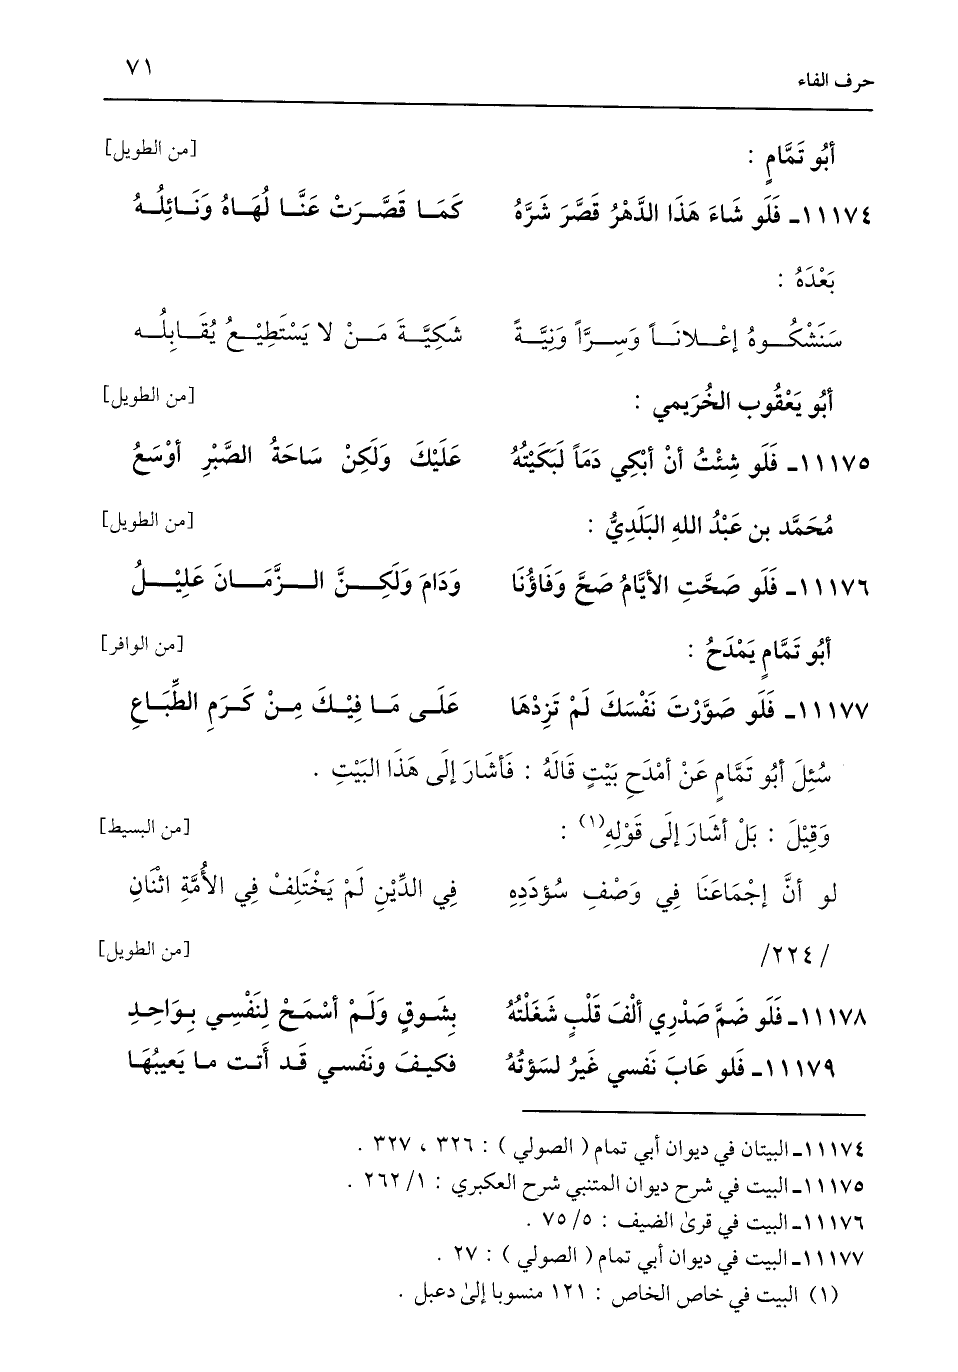 حرف الفاء ٧١
أبُو تَمَّامٍ : [من الطويل]
١١١٧٤ـ فَلَو شَاءَ هَذَا الدَّهْرُ قَصَّرَ شَرَّهُ كَمَـا قَصَّـرَتْ عَنَّـا لُهَاهُ وَنَـائِلُـهُ
بَعْدَهُ :
سَنَشْكُـوهُ إعْـلانَـاً وَسِـرَّاً وَنِيَّـةً شَكِيَّـةَ مَـنْ لا يَسْتَطِيْـعُ يُقَـابِلُـه
أبُو يَعْقُوب الخُرَيمي : [من الطويل]
١١١٧٥ـ فَلَو شِئْتُ أنْ أبْكِي دَمَاً لَبَكَيْتُهُ عَلَيْكَ وَلَكِنْ سَاحَةُ الصَّبْرِ أوْسَعُ
مُحَمَّد بن عَبْدُ اللهِ البَلَدِيُّ : [من الطويل]
١١١٧٦ـ فَلَو صَحَّتِ الأيَّامُ صَحَّ وَفَاؤُنَا وَدَامَ وَلَكِـنَّ الـزَّمَـانَ عَلِيْـلُ
أبُو تَمَّامٍ يَمْدَحُ : [من الوافر]
١١١٧٧ـ فَلَو صَوَّرْتَ نَفْسَكَ لَمْ تَزِدْهَا عَلَـى مَـا فِيْـكَ مِـنْ كَـرَمِ الطِّبَـاعِ
سُئِلَ أبُو تَمَّامٍ عَنْ أمْدَحِ بَيْتٍ قَالَهُ : فَأشَارَ إلَى هَذَا البَيْتِ .
وَقِيْلَ : بَلْ أشَارَ إلَى قَوْلِهِ(١) : [من البسيط]
لو أنَّ إجْمَاعَنَا فِي وَصْفِ سُؤدَدِهِ فِي الدِّيْنِ لَمْ يَخْتَلِفْ فِي الأُمَّةِ اثْنَانِ
/٢٢٤/ [من الطويل]
١١١٧٨ـ فَلَو ضَمَّ صَدْرِي ألْفَ قَلْبٍ شَغَلْتُهُ بِشَـوقٍ وَلَـمْ أسْمَـحْ لِنَفْسِـي بِـوَاحِـدِ
١١١٧٩ـ فَلو عَابَ نَفسي غَيرُ لسَؤتُهُ فكيـفَ ونَفسـي قَـد أَتـت مـا يَعيبُهَـا
١١١٧٤ـ البيتان في ديوان أبي تمام ( الصولي ) : ٣٢٦ ، ٣٢٧ .
١١١٧٥ـ البيت في شرح ديوان المتنبي شرح العكبري : ١/ ٢٦٢ .
١١١٧٦ـ البيت في قرىٰ الضيف : ٥/ ٧٥ .
١١١٧٧ـ البيت في ديوان أبي تمام ( الصولي ) : ٢٧ .
(١) البيت في خاص الخاص : ١٢١ منسوبا إلىٰ دعبل .